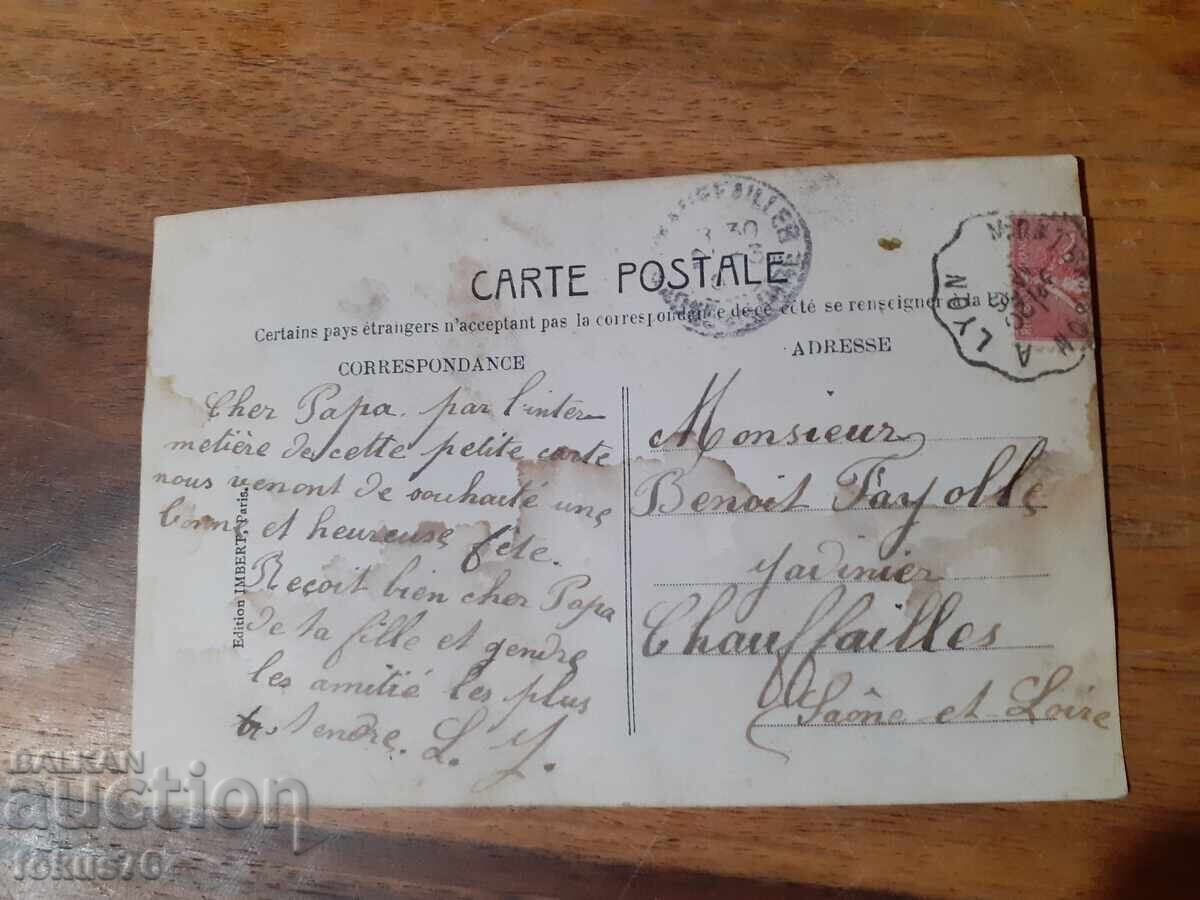 CARTE POSTALE
Certains pays étrangers n'acceptent pas la correspondance de ce côté se renseigner à la
CORRESPONDANCE
ADRESSE
Cher Papa par l'inter
metière de cette petite carte
nous venont de souhaité une
bonne et heureuse fête.
Reçoit bien cher Papa
de ta fille et gendre
les amitié les plus
tendre. L. J.
Monsieur
Benoit Fayolle
Jadinier
Chauffailles
Saône et Loire
Edition IMBERT, Paris.
A LYON
3 30
BALKAN
auction
fokus70